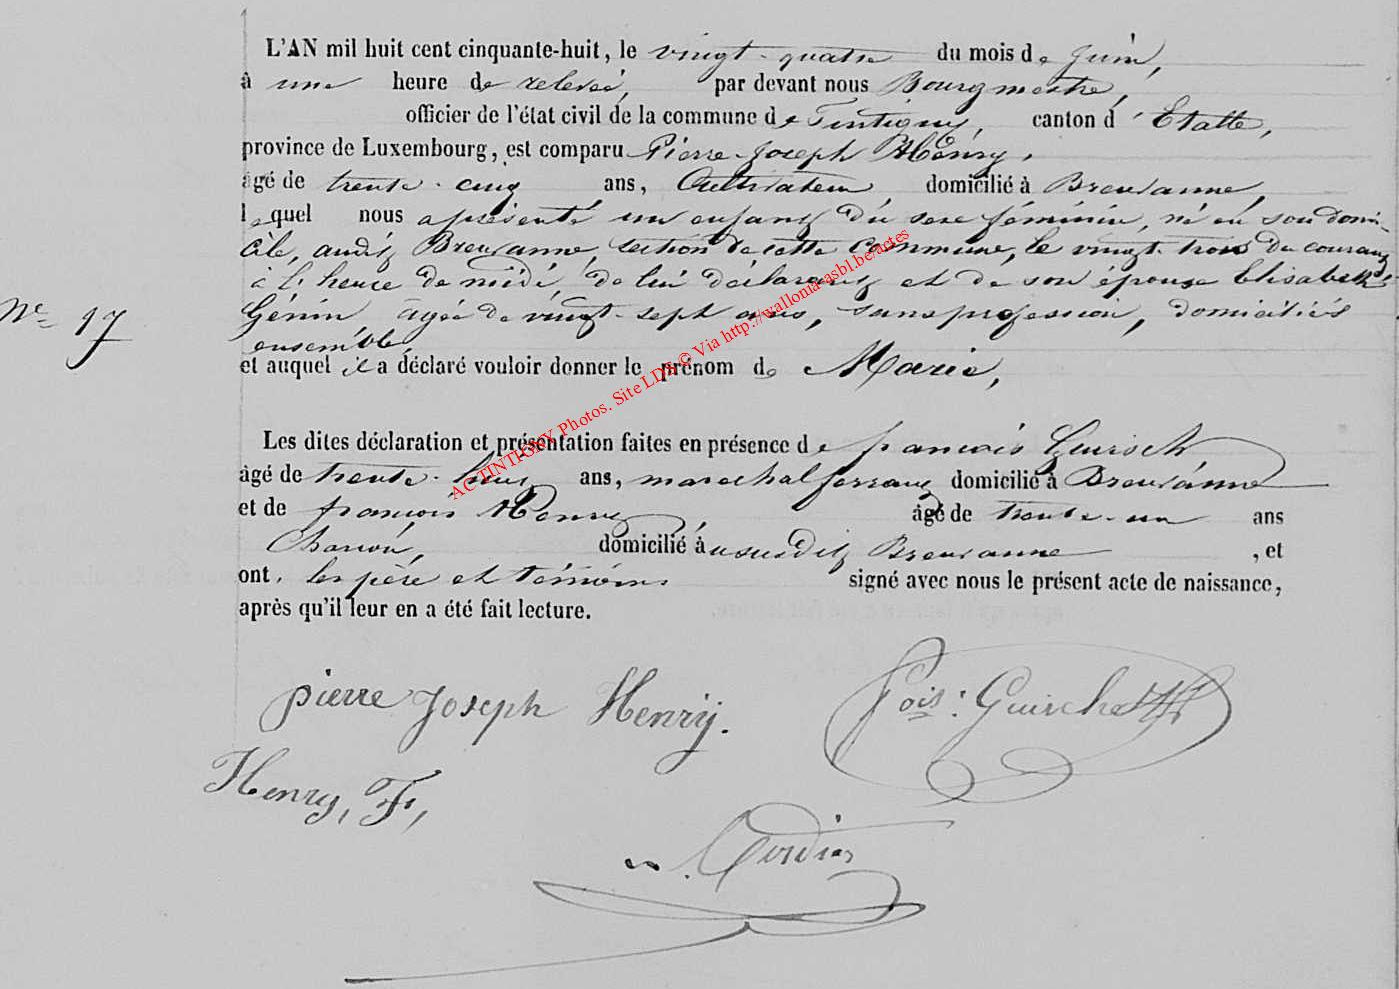 L'AN mil huit cent cinquante-huit, le vingt-quatre du mois de Juin,
à une heure de relevée, par devant nous Bourgmestre,
officier de l'état civil de la commune de Tintigny, canton d'Etalle,
province de Luxembourg, est comparu Pierre-Joseph Henry,
âgé de trente-cinq ans, Cultivateur domicilié à Breuvanne,
lequel nous a présenté un enfant du sexe féminin, né en son domi-
cile, audit Breuvanne, section de cette commune, le vingt-trois du courant
à l'heure de midi, de lui déclarant et de son épouse Elisabeth
Génin âgée de vingt-sept ans, sans profession, domiciliés
ensemble,
Nº 97
et auquel il a déclaré vouloir donner le prénom de Marie,
Les dites déclaration et présentation faites en présence de françois Guirsch
âgé de trente-huit ans, marechal ferrant domicilié à Breuvanne
et de françois Henry, âgé de trente-un ans
Charron, domicilié au susdit Breuvanne, et
ont, les père et témoins signé avec nous le présent acte de naissance,
après qu'il leur en a été fait lecture.
pierre Joseph Henrÿ.
fois: Guirche
Henry, F,
AC TINTIGNY Photos. Site LDS © Via http://wallonia-asbl.be/actes